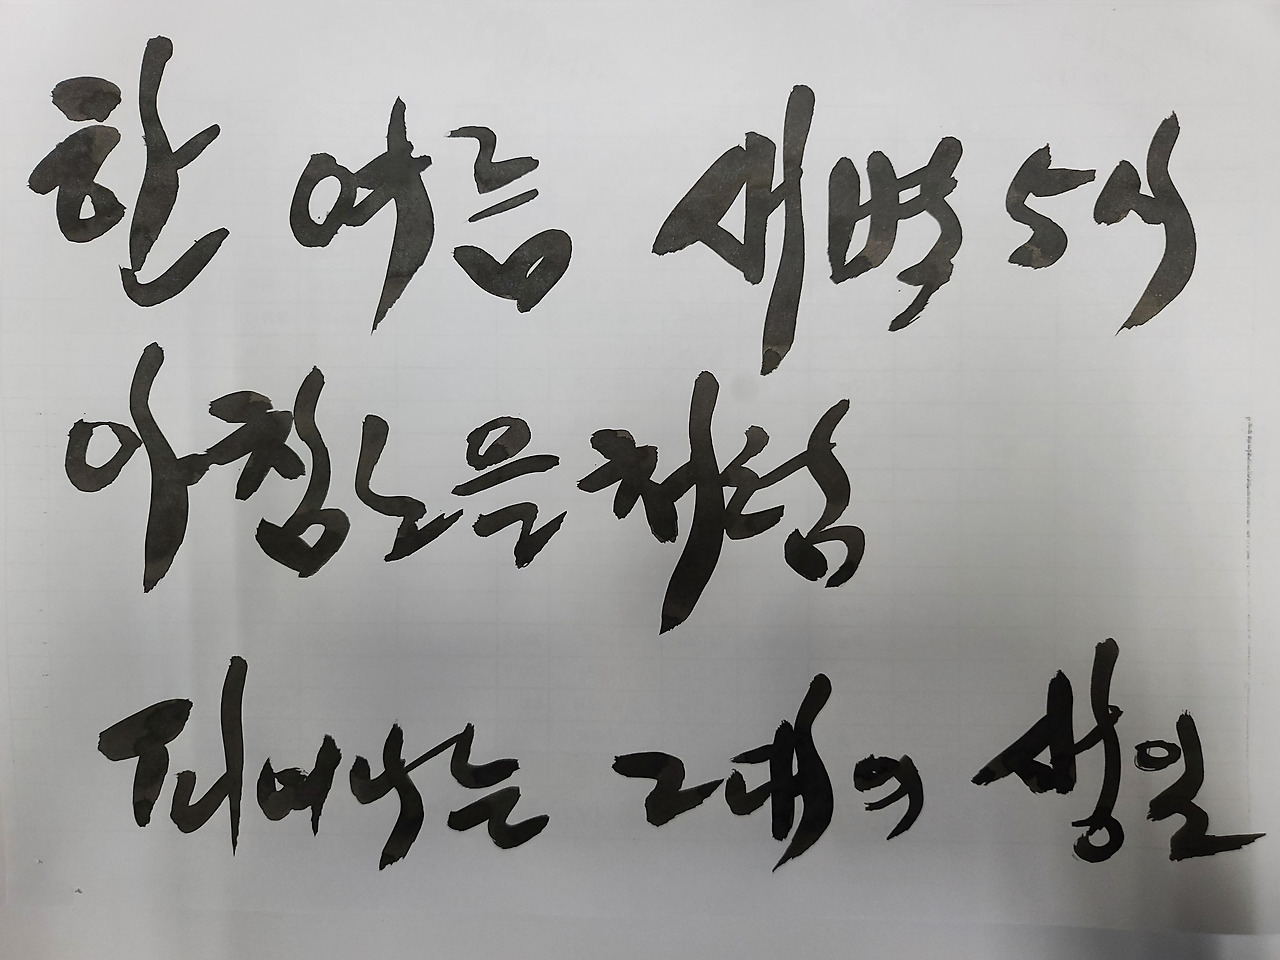 한 여름 새벽 5시
아침노을처럼
피어나는 그대의 생일